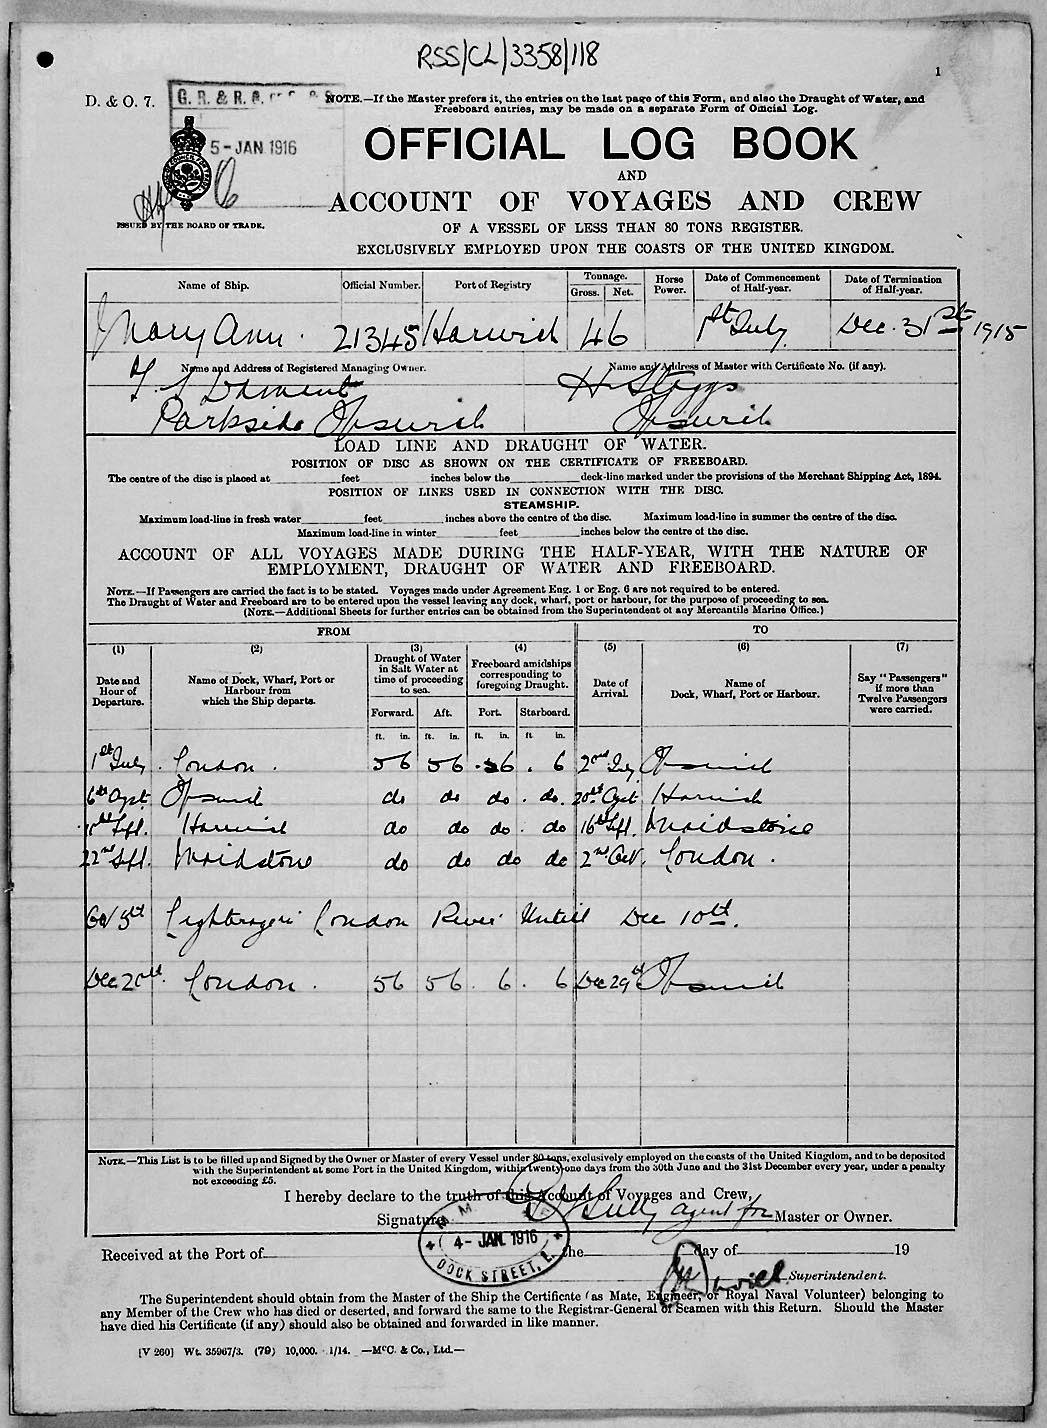 RSS/CL/3358/118
1
D. & O. 7.
G. R. & R. G.
NOTE.—If the Master prefers it, the entries on the last page of this Form, and also the Draught of Water, and
Freeboard entries, may be made on a separate Form of Official Log.
5-JAN 1916
OFFICIAL LOG BOOK
AND
ACCOUNT OF VOYAGES AND CREW
ISSUED BY THE BOARD OF TRADE.
OF A VESSEL OF LESS THAN 80 TONS REGISTER.
EXCLUSIVELY EMPLOYED UPON THE COASTS OF THE UNITED KINGDOM.
Name of Ship. Official Number. Port of Registry Tonnage. Gross. Net. Horse Power. Date of Commencement of Half-year. Date of Termination of Half-year.
Mary Ann. 21345 Harwich 46 1st July Dec. 31st 1915
Name and Address of Registered Managing Owner. Name and Address of Master with Certificate No. (if any).
H Staggs
Parkside Ipswich Ipswich
LOAD LINE AND DRAUGHT OF WATER.
POSITION OF DISC AS SHOWN ON THE CERTIFICATE OF FREEBOARD.
The centre of the disc is placed at feet inches below the deck-line marked under the provisions of the Merchant Shipping Act, 1894.
POSITION OF LINES USED IN CONNECTION WITH THE DISC.
STEAMSHIP.
Maximum load-line in fresh water feet inches above the centre of the disc. Maximum load-line in summer the centre of the disc.
Maximum load-line in winter feet inches below the centre of the disc.
ACCOUNT OF ALL VOYAGES MADE DURING THE HALF-YEAR, WITH THE NATURE OF
EMPLOYMENT, DRAUGHT OF WATER AND FREEBOARD.
NOTE.—If Passengers are carried the fact is to be stated. Voyages made under Agreement Eng. 1 or Eng. 6 are not required to be entered.
The Draught of Water and Freeboard are to be entered upon the vessel leaving any dock, wharf, port or harbour, for the purpose of proceeding to sea.
(NOTE.—Additional Sheets for further entries can be obtained from the Superintendent of any Mercantile Marine Office.)
FROM TO
(1) (2) (3) (4) (5) (6) (7)
Date and Hour of Departure. Name of Dock, Wharf, Port or Harbour from which the Ship departs. Draught of Water in Salt Water at time of proceeding to sea. Freeboard amidships corresponding to foregoing Draught. Date of Arrival. Name of Dock, Wharf, Port or Harbour. Say "Passengers" if more than Twelve Passengers were carried.
Forward. Aft. Port. Starboard.
ft. in. ft. in. ft. in. ft in.
1st July London. 56 56 6 6 2nd July Ipswich
6th Ipswich do do do do. 20th Harwich
Sept. Harwich do do do. do 16th Sept. Maidstone
22nd Sept. Maidstone do do do do 2nd Oct. London.
Oct 5th Lighterage London River Untill Dec 10th.
Dec 20th. London. 56 56. 6. 6 Dec 29th Ipswich
NOTE.—This List is to be filled up and Signed by the Owner or Master of every Vessel under 80 tons, exclusively employed on the coasts of the United Kingdom, and to be deposited
with the Superintendent at some Port in the United Kingdom, within twenty-one days from the 30th June and the 31st December every year, under a penalty
not exceeding £5.
I hereby declare to the truth of this Account of Voyages and Crew,
Signature agent for Master or Owner.
4-JAN.1916
DOCK STREET, E.
Received at the Port of the day of 19
Superintendent.
The Superintendent should obtain from the Master of the Ship the Certificate (as Mate, Engineer, or Royal Naval Volunteer) belonging to
any Member of the Crew who has died or deserted, and forward the same to the Registrar-General of Seamen with this Return. Should the Master
have died his Certificate (if any) should also be obtained and forwarded in like manner.
[V 260] Wt. 35967/3. (79) 10,000. 1/14. —McC. & Co., Ltd.—